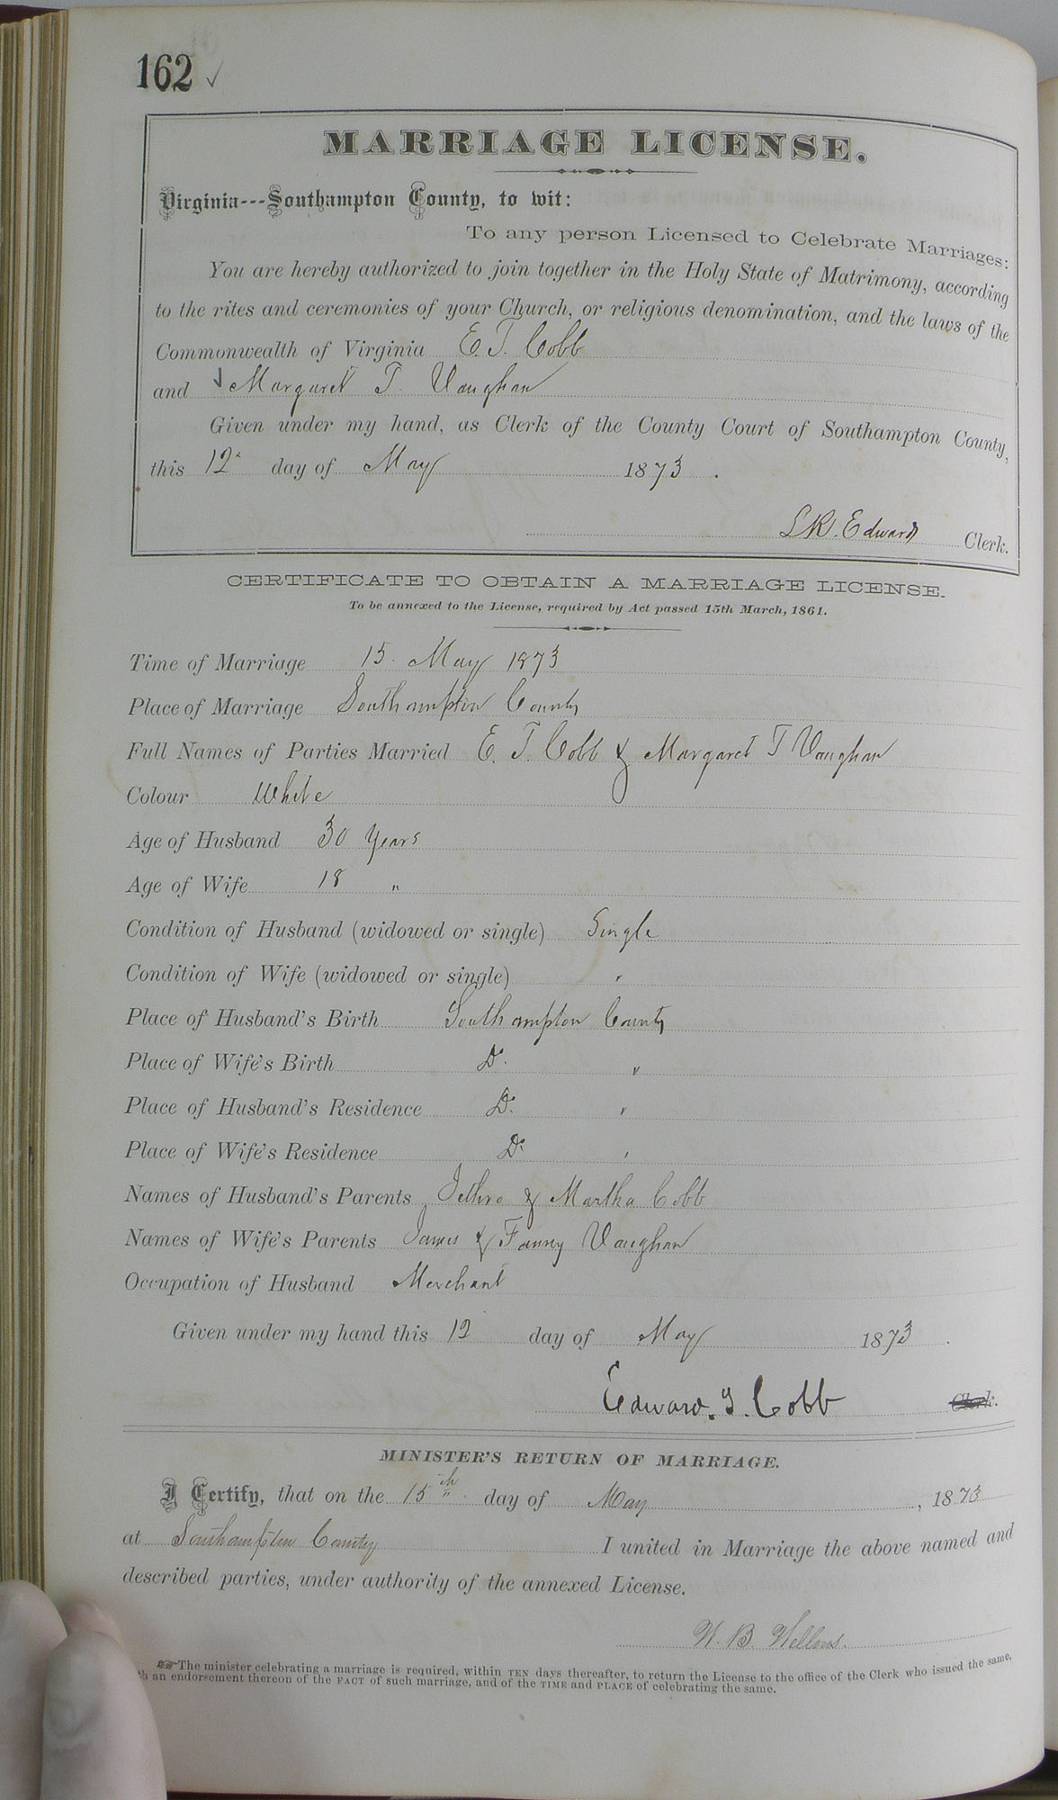 162 ✓
MARRIAGE LICENSE.
Virginia---Southampton County, to wit:
To any person Licensed to Celebrate Marriages:
You are hereby authorized to join together in the Holy State of Matrimony, according
to the rites and ceremonies of your Church, or religious denomination, and the laws of the
Commonwealth of Virginia E. T. Cobb
and ✓ Margaret T. Vaughan
Given under my hand, as Clerk of the County Court of Southampton County,
this 12" day of May 1873 .
L.R. Edwards Clerk.
CERTIFICATE TO OBTAIN A MARRIAGE LICENSE.
To be annexed to the License, required by Act passed 15th March, 1861.
Time of Marriage 15. May 1873
Place of Marriage Southampton County
Full Names of Parties Married E. T. Cobb & Margaret T Vaughan
Colour White
Age of Husband 30 Years
Age of Wife 18 "
Condition of Husband (widowed or single) Single
Condition of Wife (widowed or single) "
Place of Husband's Birth Southampton County
Place of Wife's Birth Do. "
Place of Husband's Residence Do. "
Place of Wife's Residence Do "
Names of Husband's Parents Jethro & Martha Cobb
Names of Wife's Parents James & Fanny Vaughan
Occupation of Husband Merchant
Given under my hand this 12 day of May 1873 .
Edward. T. Cobb Clerk.
MINISTER'S RETURN OF MARRIAGE.
I Certify, that on the 15th day of May , 1873
at Southampton County I united in Marriage the above named and
described parties, under authority of the annexed License.
W. B. Wellons.
☞The minister celebrating a marriage is required, within TEN days thereafter, to return the License to the office of the Clerk who issued the same,
an endorsement thereon of the FACT of such marriage, and of the TIME and PLACE of celebrating the same.